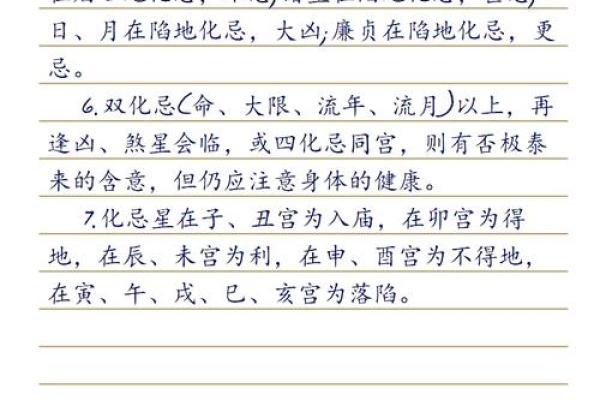 日、月在陷地化忌，大凶;廉贞在陷地化忌，更
忌。
6.双化忌(命、大限、流年、流月)以上，再
逢凶、煞星会临，或四化忌同宫，则有否极泰
来的含意，但仍应注意身体的健康。
7.化忌星在子、丑宫为入庙，在卯宫为得
地，在辰、未宫为利，在申、酉宫为不得地，
在寅、午、戌、巳、亥宫为落陷。